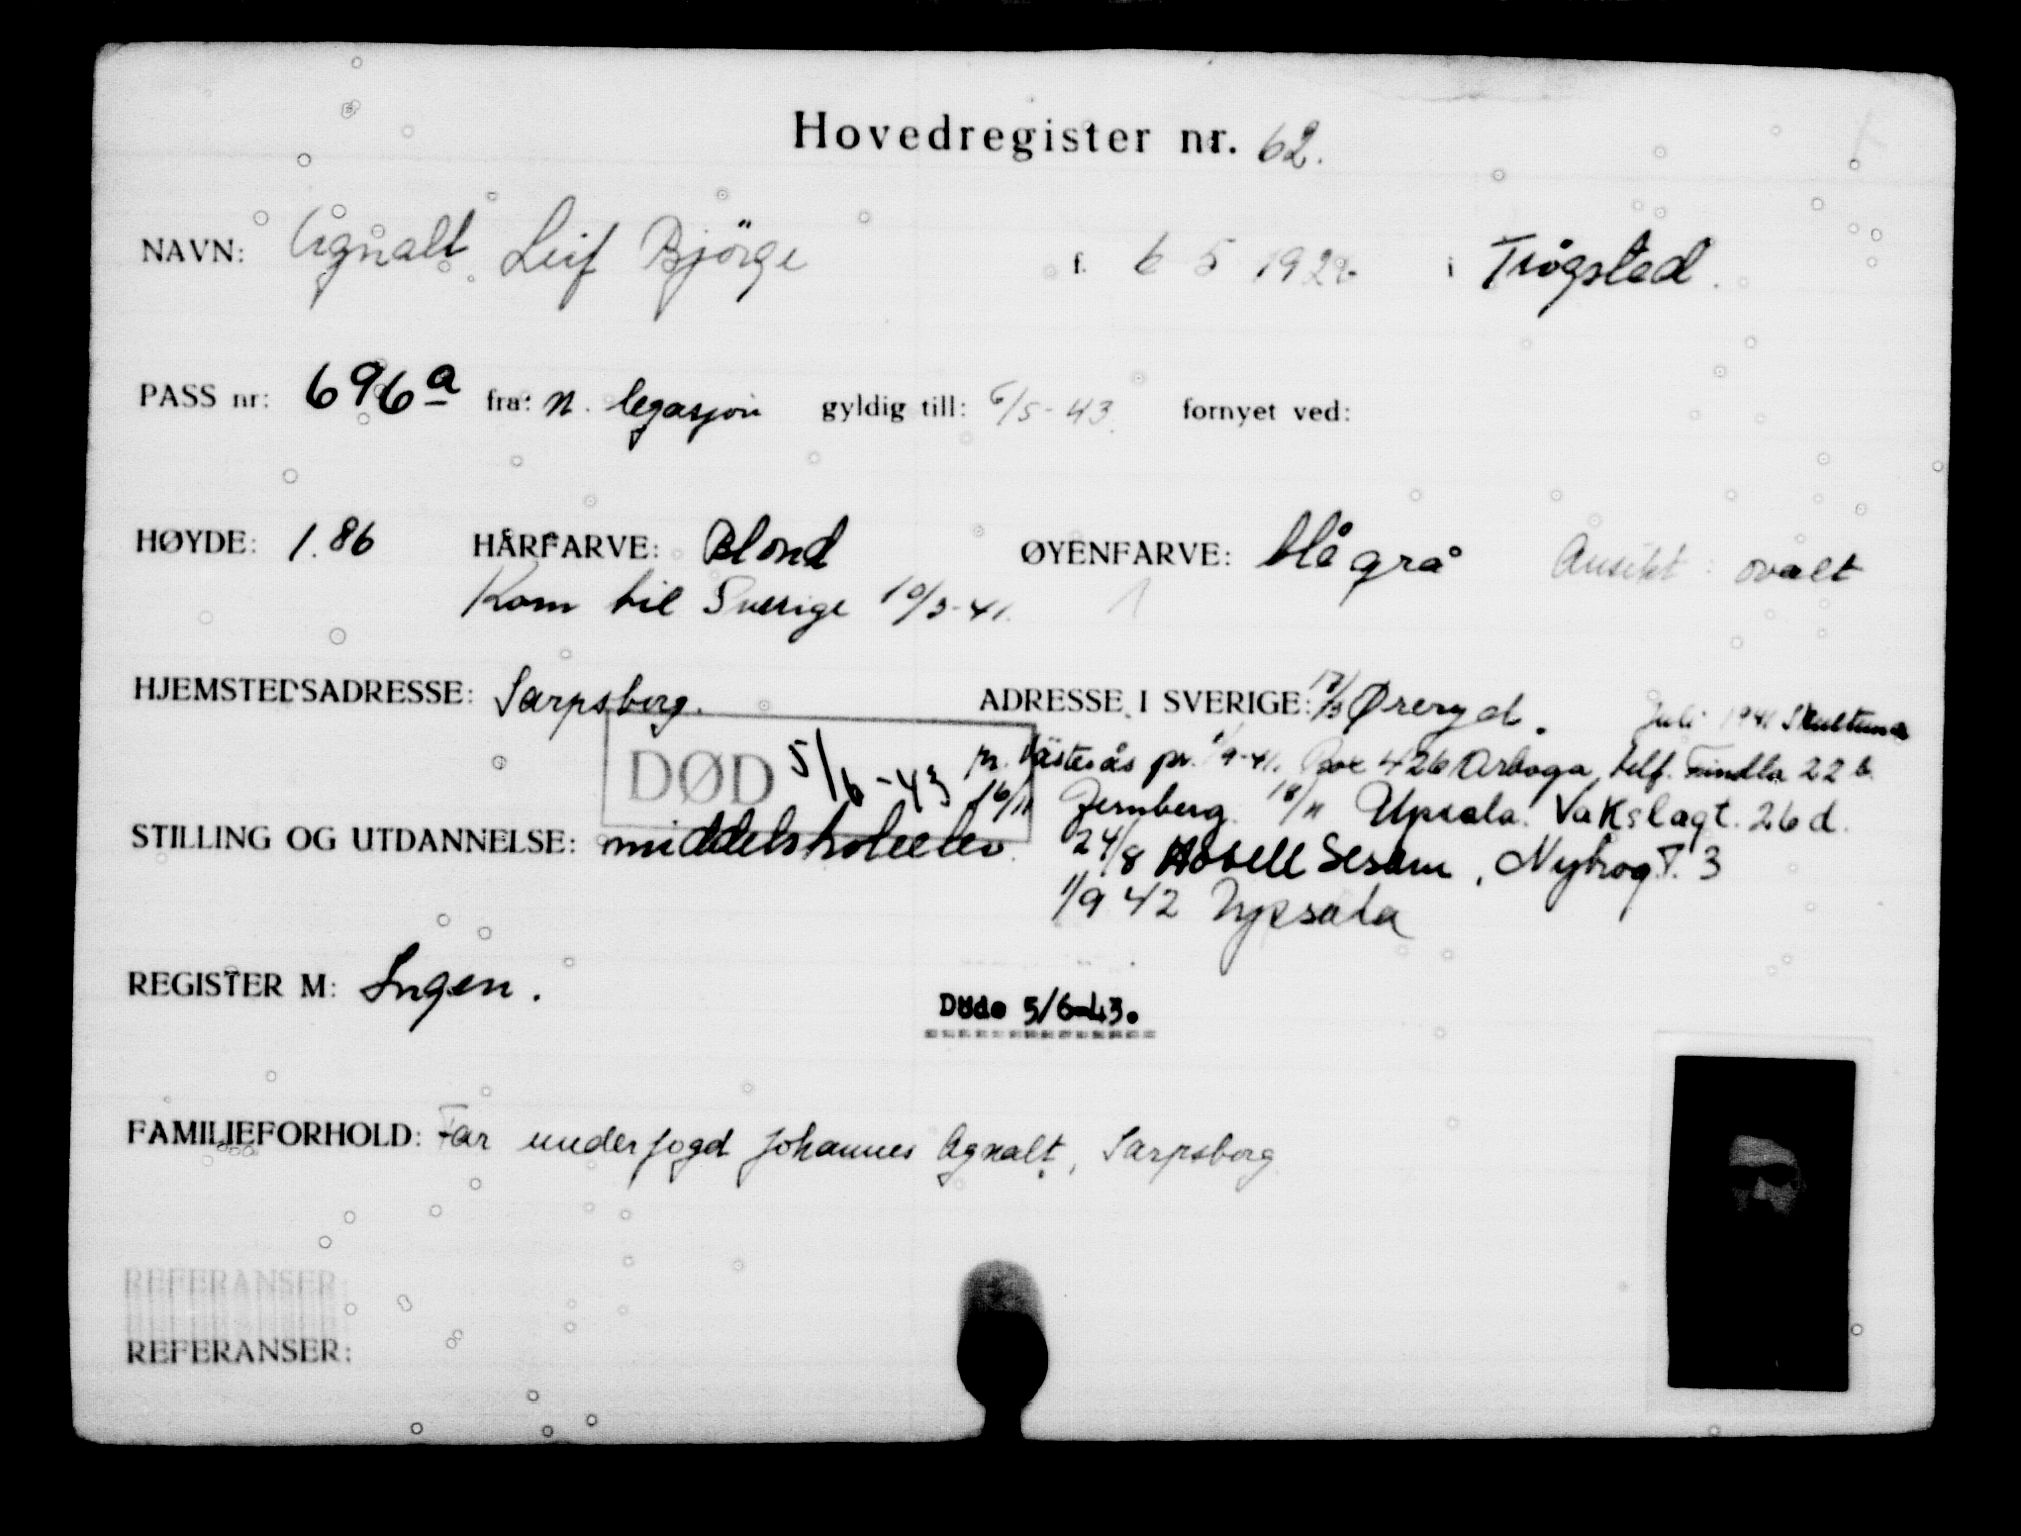 Hovedregister nr. 62.
NAVN: Agnalt Leif Bjørge f. 6 5 1922 i Trøgsted.
PASS nr: 696a fra: n. legasjon gyldig till: 6/5-43. fornyet ved:
HØYDE: 1.86 HÅRFARVE: Blond ØYENFARVE: blågrå Ansikt: ovalt
Kom til Sverige 10/3-41.
HJEMSTEDSADRESSE: Sarpsborg. ADRESSE I SVERIGE: 13/3 Øreryd. Juli 1941 Skultuna
DØD 5/6-43 pr. Västerås pr. 1/9-41. Box 426 Arboga, telf. 22 b.
16/11 Jernberg. 18/11 Upsala. Vakslagt. 26 d.
STILLING OG UTDANNELSE: middelskoleelev. 24/8 Hotell Sesam, Nybrog. 3
1/9 42 Upsala
REGISTER M: Ingen.
Døde 5/6-43.
FAMILIEFORHOLD: Far underfogd Johannes Agnalt, Sarpsborg
REFERANSER
REFERANSER: